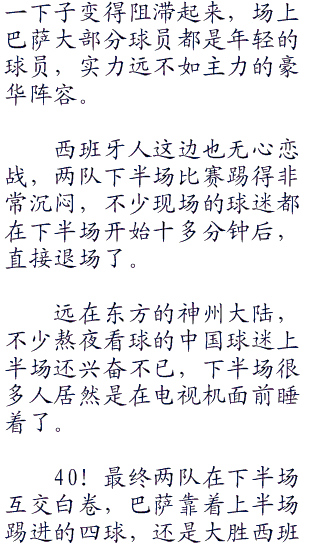 一下子变得阻滞起来，场上
巴萨大部分球员都是年轻的
球员，实力远不如主力的豪
华阵容。
西班牙人这边也无心恋
战，两队下半场比赛踢得非
常沉闷，不少现场的球迷都
在下半场开始十多分钟后，
直接退场了。
远在东方的神州大陆，
不少熬夜看球的中国球迷上
半场还兴奋不已，下半场很
多人居然是在电视机面前睡
着了。
40！最终两队在下半场
互交白卷，巴萨靠着上半场
踢进的四球，还是大胜西班